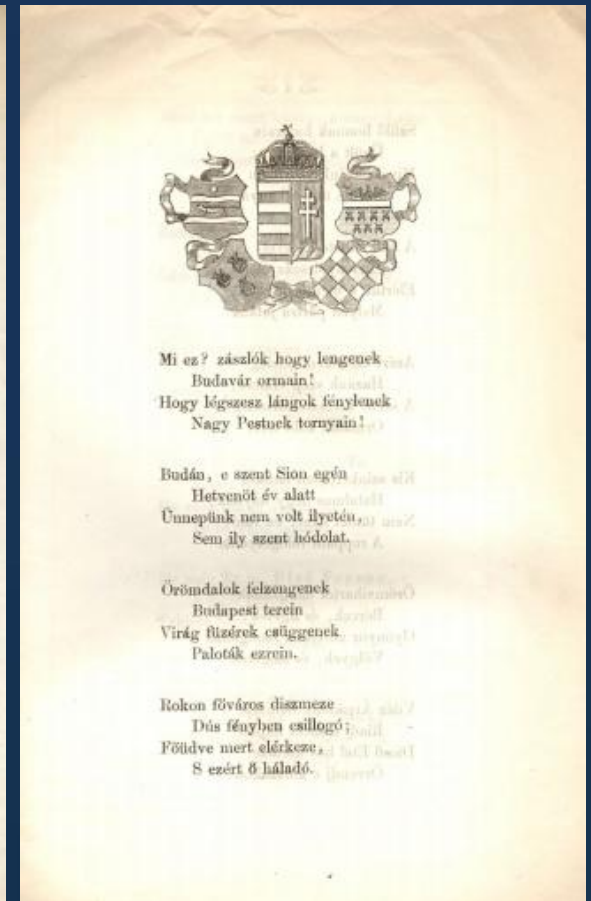 Mi ez? zászlók hogy lengenek
Budavár ormain!
Hogy légszesz lángok fénylenek
Nagy Pestnek tornyain!
Budán, e szent Sion egén
Hetvenöt év alatt
Ünnepünk nem volt ilyetén,
Sem ily szent hódolat.
Örömdalok felzengenek
Budapest terein
Virág füzérek csüggenek
Paloták ezrein.
Rokon főváros diszmeze
Dús fényben csillogó;
Főüdve mert elérkeze,
S ezért ő háladó.